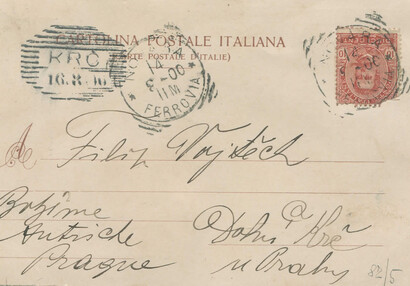 CARTOLINA POSTALE ITALIANA
(CARTE POSTALE D'ITALIE)
KRČ
16.8.
FERROVIA
Filip Vojtěch
Bohème
Autriche
Prague
Dolní Krč
u Prahy
82/5